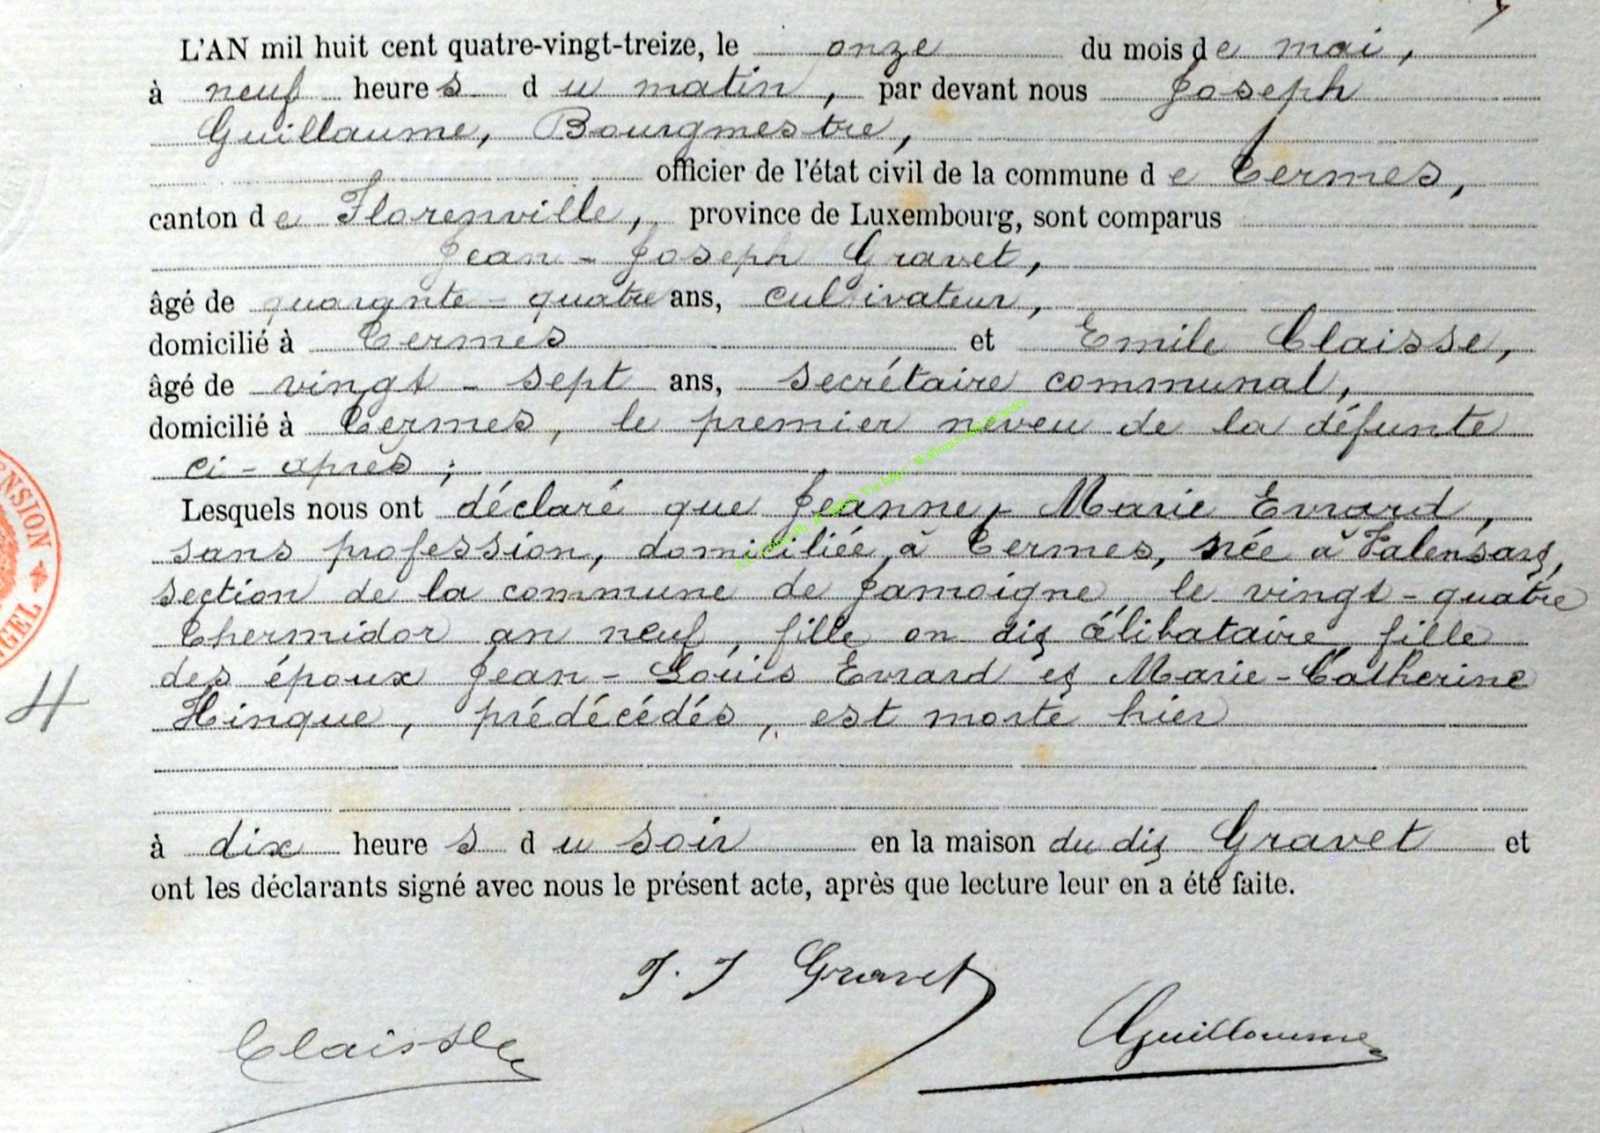 L'AN mil huit cent quatre-vingt-treize, le onze du mois de mai,
à neuf heures du matin, par devant nous Joseph
Guillaume, Bourgmestre,
officier de l'état civil de la commune de Termes,
canton de Florenville, province de Luxembourg, sont comparus
Jean-Joseph Gravet,
âgé de quarante-quatre ans, cultivateur,
domicilié à Termes et Emile Claisse,
âgé de vingt-sept ans, secrétaire communal,
domicilié à Termes, le premier neveu de la défunte
ci-après;
Lesquels nous ont déclaré que Jeanne-Marie Evrard,
sans profession, domiciliée à Termes, née à Valensart,
section de la commune de Jamoigne le vingt-quatre
Thermidor an neuf, fille on dit célibataire fille
des époux Jean-Louis Evrard et Marie-Catherine
Hinque, prédécédés, est morte hier
à dix heures du soir en la maison du dit Gravet et
ont les déclarants signé avec nous le présent acte, après que lecture leur en a été faite.
J. J Gravet
Claisse
Guillaume
NSION
NGEL
4